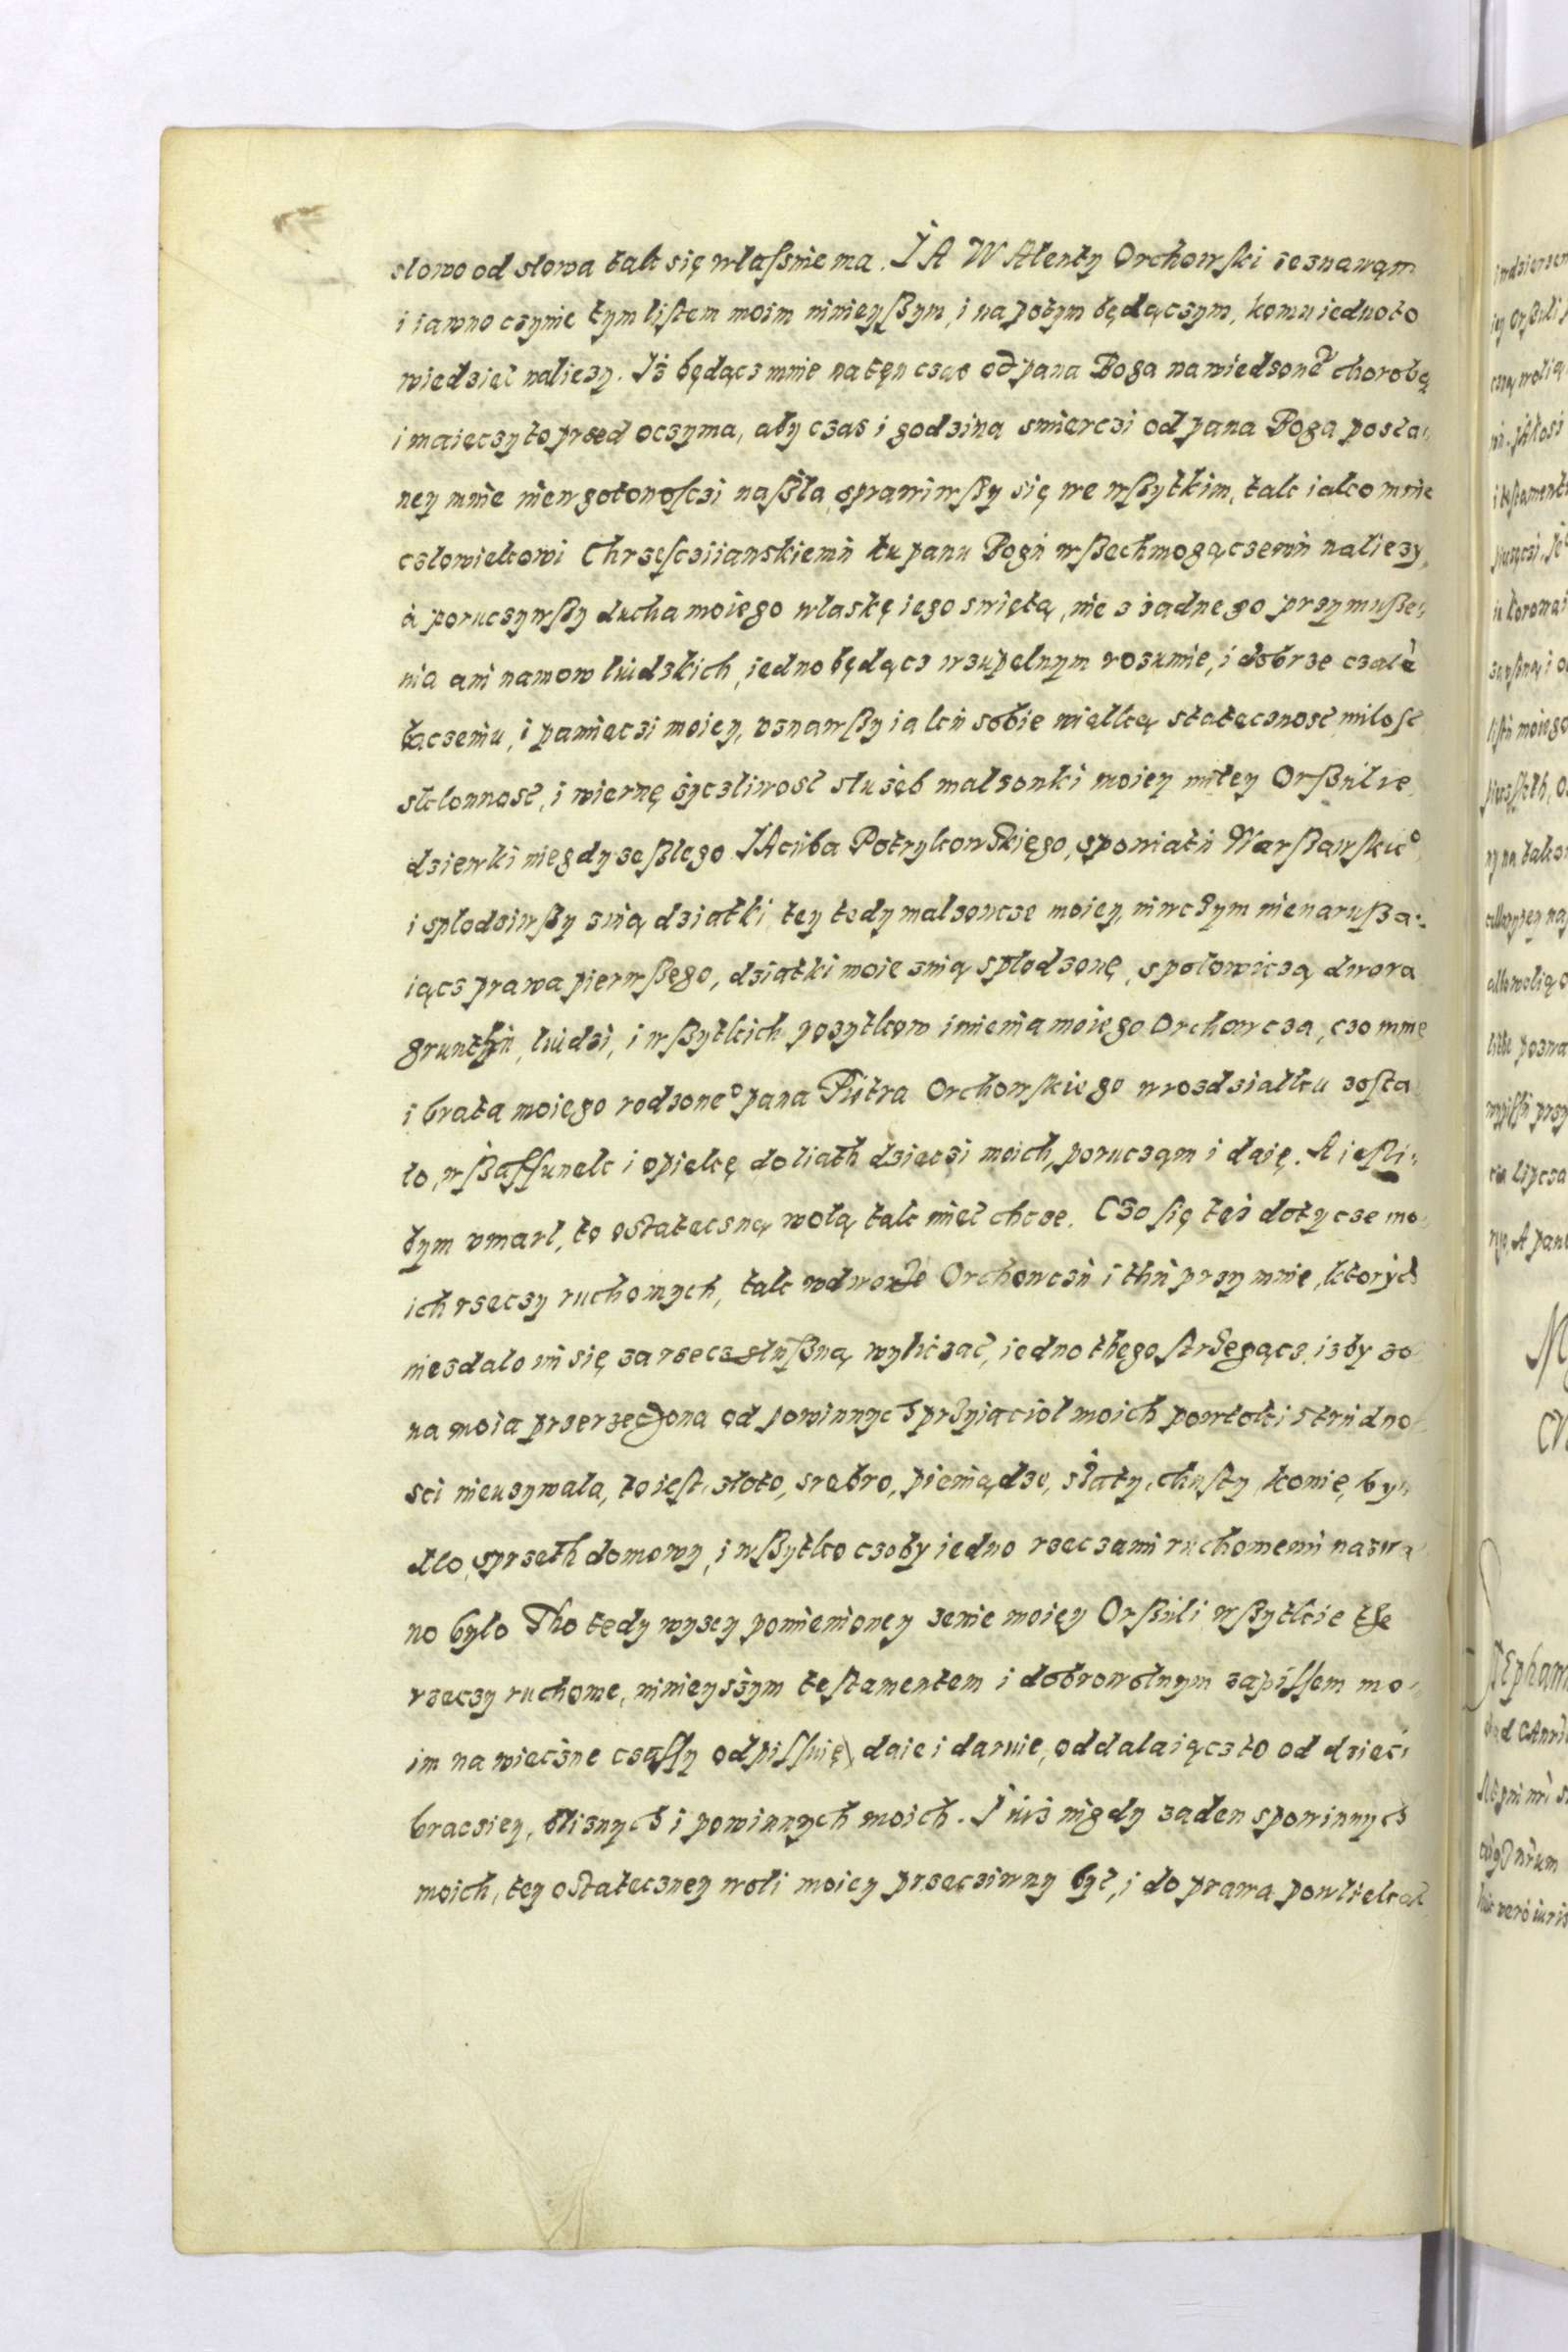 słowo od słowa tak się właſsnie ma. JA WAlenty Orchowſki zeznawąm
i iawno czynie tym liſtem moim ninieyßym, i na potym będączym, komu iedno to
wiedzieć naliezy. Iż będącz mnie na tęn czas od pana Boga nawiedzoné chorobą
i maięczy to przed oczyma, aby czas i godzina smierczi od pana Boga posła„
ney mnie niewgotowoſczi naßła, sprawiwßy się we wßytkim, tak iako mnie
człowiekowi Chrzeſcziianskiemú ku panu Bogú wßechmogączemú naliezy,
á poruczywßy ducha moiego właskę iego swiętą, nie z żadnego przymuße„
nia ani namow lúdzkich, iedno będącz wzupełnym rozumie, i dobrze czałè
baczeniu, i pamięczi moiey, vznawßy iakú sobie wielką statecznosć miłoſć
skłonnosć, i wiernę życzliwosć służeb małzonki moiey miłey Orßúłie,
dziewki niegdy zeßłego JAcúba Potrykowskięgo, spowiatú Warßawſkie°,
i spłodziwßy znią dziatki, tey tedy małzoncze moiey, niwczym nienarußa„
iącz prawa pierwßęgo, dziatki moie znią spłodzonę, społowiczą dwora
grunthú, lúdzi, i wßytkich pozytkow imienia moiego Orchowcza, czo mnie
i brata moięgo rodzone° pana Piotra Orchowſkiego wrozdziałku zoſta
ło, wßaffunek i opiekę do liath dzieczi moich, porucząm i daię. A ieſli„
bym vmarł, to ostateczną wolą tak mieć chcze. Czo ſię tęż dotycze mo„
ich rzeczy ruchomych, tak wdworze Orchowczú i thú przy mnie, których
niezdało mi się zarzecz słúßną wyliczać, iedno thego ſtrzegącz, izby żo
na moia przerzeczona od powinnych przyiacioł moich powłoki i trúdno
sci nieuzywała, to ieſt, złoto, srebro, pieniądze, szaty, chuſty, konie, by„
dło, sprzeth domowy, i wßytko czoby iedno rzeczami ruchomemi nazwa
no było Tho tedy wyzey pomienioney zenie moięy Orßúli wßytkie the
rzeczy ruchome, ninieyszym teſtamentem i dobrowolnym zapiſſem mo„
im na wieczne czaſſy odpiſſuię, daie i daruie, oddalaiącz to od dzieci
braczięy, bliznych i powinnych moich. Júż nigdy zaden spowinnych
moich, tey ostateczney woli moiey przeciwny być, i do prawa powliekać